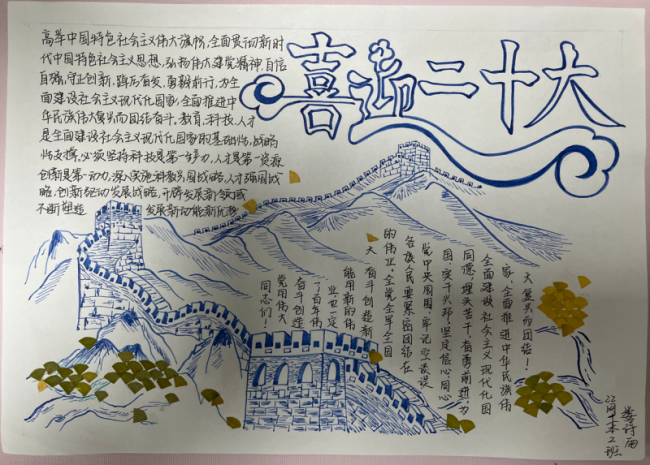 喜迎二十大
高举中国特色社会主义伟大旗帜,全面贯彻新时
代中国特色社会主义思想,弘扬伟大建党精神,自信
自强,守正创新,踔厉奋发,勇毅前行,为全
面建设社会主义现代化国家,全面推进中
华民族伟大复兴而团结奋斗。教育、科技、人才
是全面建设社会主义现代化国家的基础性、战略
性支撑。必须坚持科技是第一生产力,人才是第一资源
创新是第一动力,深入实施科教兴国战略,人才强国战
略,创新驱动发展战略,开辟发展新领域
不断塑造 发展新动能新优势
大复兴而团结!
家、全面推进中华民族伟
全面建设社会主义现代化国
同德,埋头苦干,奋勇前进,为
国,实干兴邦,坚定信心同心
党中央周围,牢记空谈误
各族人民要紧密团结在
的伟业,全党全军全国
大
奋斗创造新
能用新的伟
业也一定
了百年伟
奋斗创造
党用伟大
同志们!
班